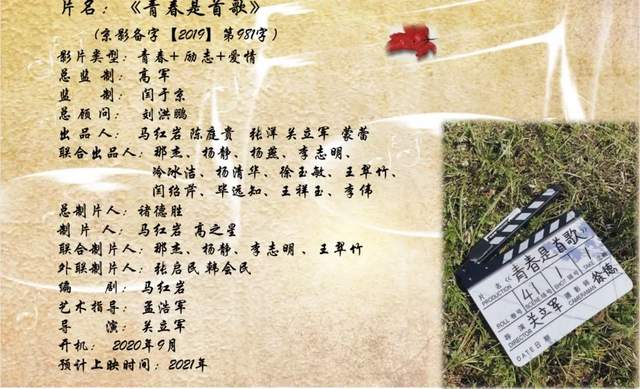 片名：《青春是首歌》
（京影备字【2019】第981字）
影片类型：青春+励志+爱情
总监制：高军
监制：闫于京
总顾问：刘洪鹏
出品人：马红岩 陈庭贵 张洋 关立军 蒙蕾
联合出品人：那杰、杨静、杨燕、李志明、
冷冰洁、杨清华、徐玉敏、王翠竹、
闫绍萍、毕远知、王祥玉、李伟
总制片人：褚德胜
制片人：马红岩 高之星
联合制片人：那杰、杨静、李志明、王翠竹
外联制片人：张启民 韩会民
编剧：马红岩
艺术指导：孟浩军
导演：关立军
开机：2020年9月
预计上映时间：2021年
片名《青春是首歌》
PRODUCTION
41 1 1
ROLL 卷号 SCENE 场号 SHOT 镜号
导演 关立军 摄影师
DIRECTOR CAMERAMAN
DATE 日期